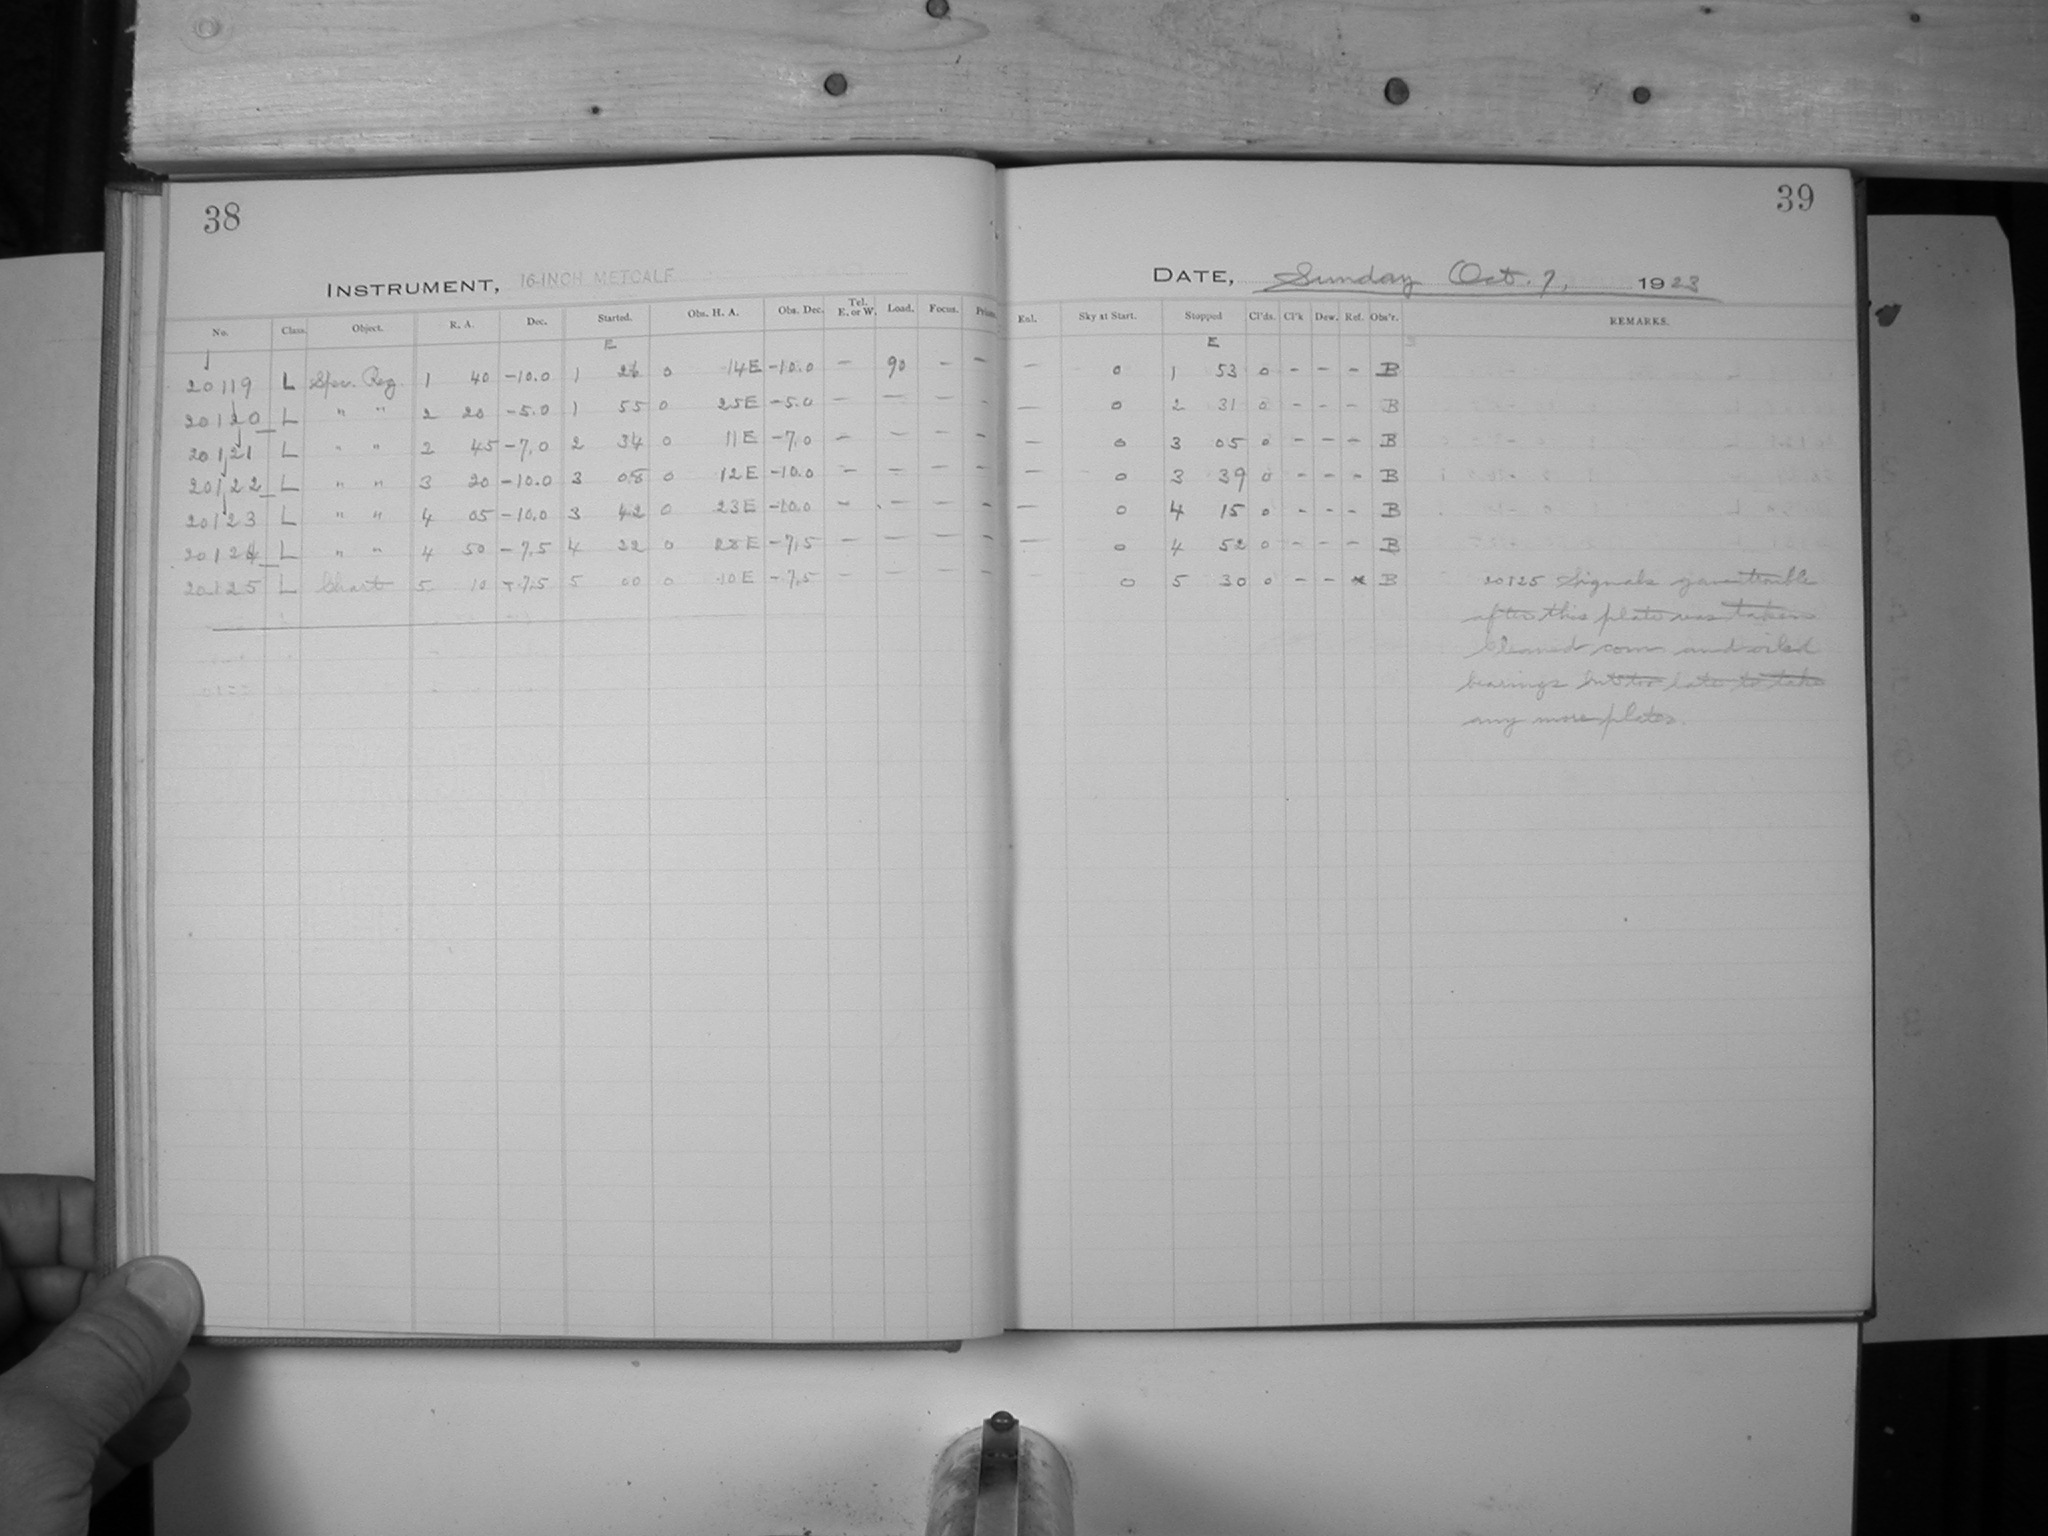 38
INSTRUMENT, 16-INCH METCALF
No. Class. Object. R. A. Dec. Started. Obs. H. A. Obs. Dec. Tel. E. or W. Load. Focus. Prism.
E
20119 L Spec. Reg. 1 40 -10.0 1 26 0 14E -10.0 - 90 - -
20120 L " " 2 20 -5.0 1 55 0 25E -5.0 - - - -
20121 L " " 2 45 -7.0 2 34 0 11E -7.0 - - - -
20122 L " " 3 20 -10.0 3 08 0 12E -10.0 - - - -
20123 L " " 4 05 -10.0 3 42 0 23E -10.0 - - - -
20124 L " " 4 50 -7.5 4 22 0 28E -7.5 - - - -
20125 L Chart 5 10 -7.5 5 00 0 10E -7.5 - - - -
39
DATE, Sunday Oct. 7, 1923
Exl. Sky at Start. Stopped Cl'ds. Cl'k Dew. Ref. Obs'r. REMARKS.
E
- 0 1 53 0 - - - B
- 0 2 31 0 - - - B
- 0 3 05 0 - - - B
- 0 3 39 0 - - - B
- 0 4 15 0 - - - B
- 0 4 52 0 - - - B
- 0 5 30 0 - - * B 20125 Signals gave trouble
after this plate was taken
Cleaned com and oiled
bearings but too late to take
any more plates.